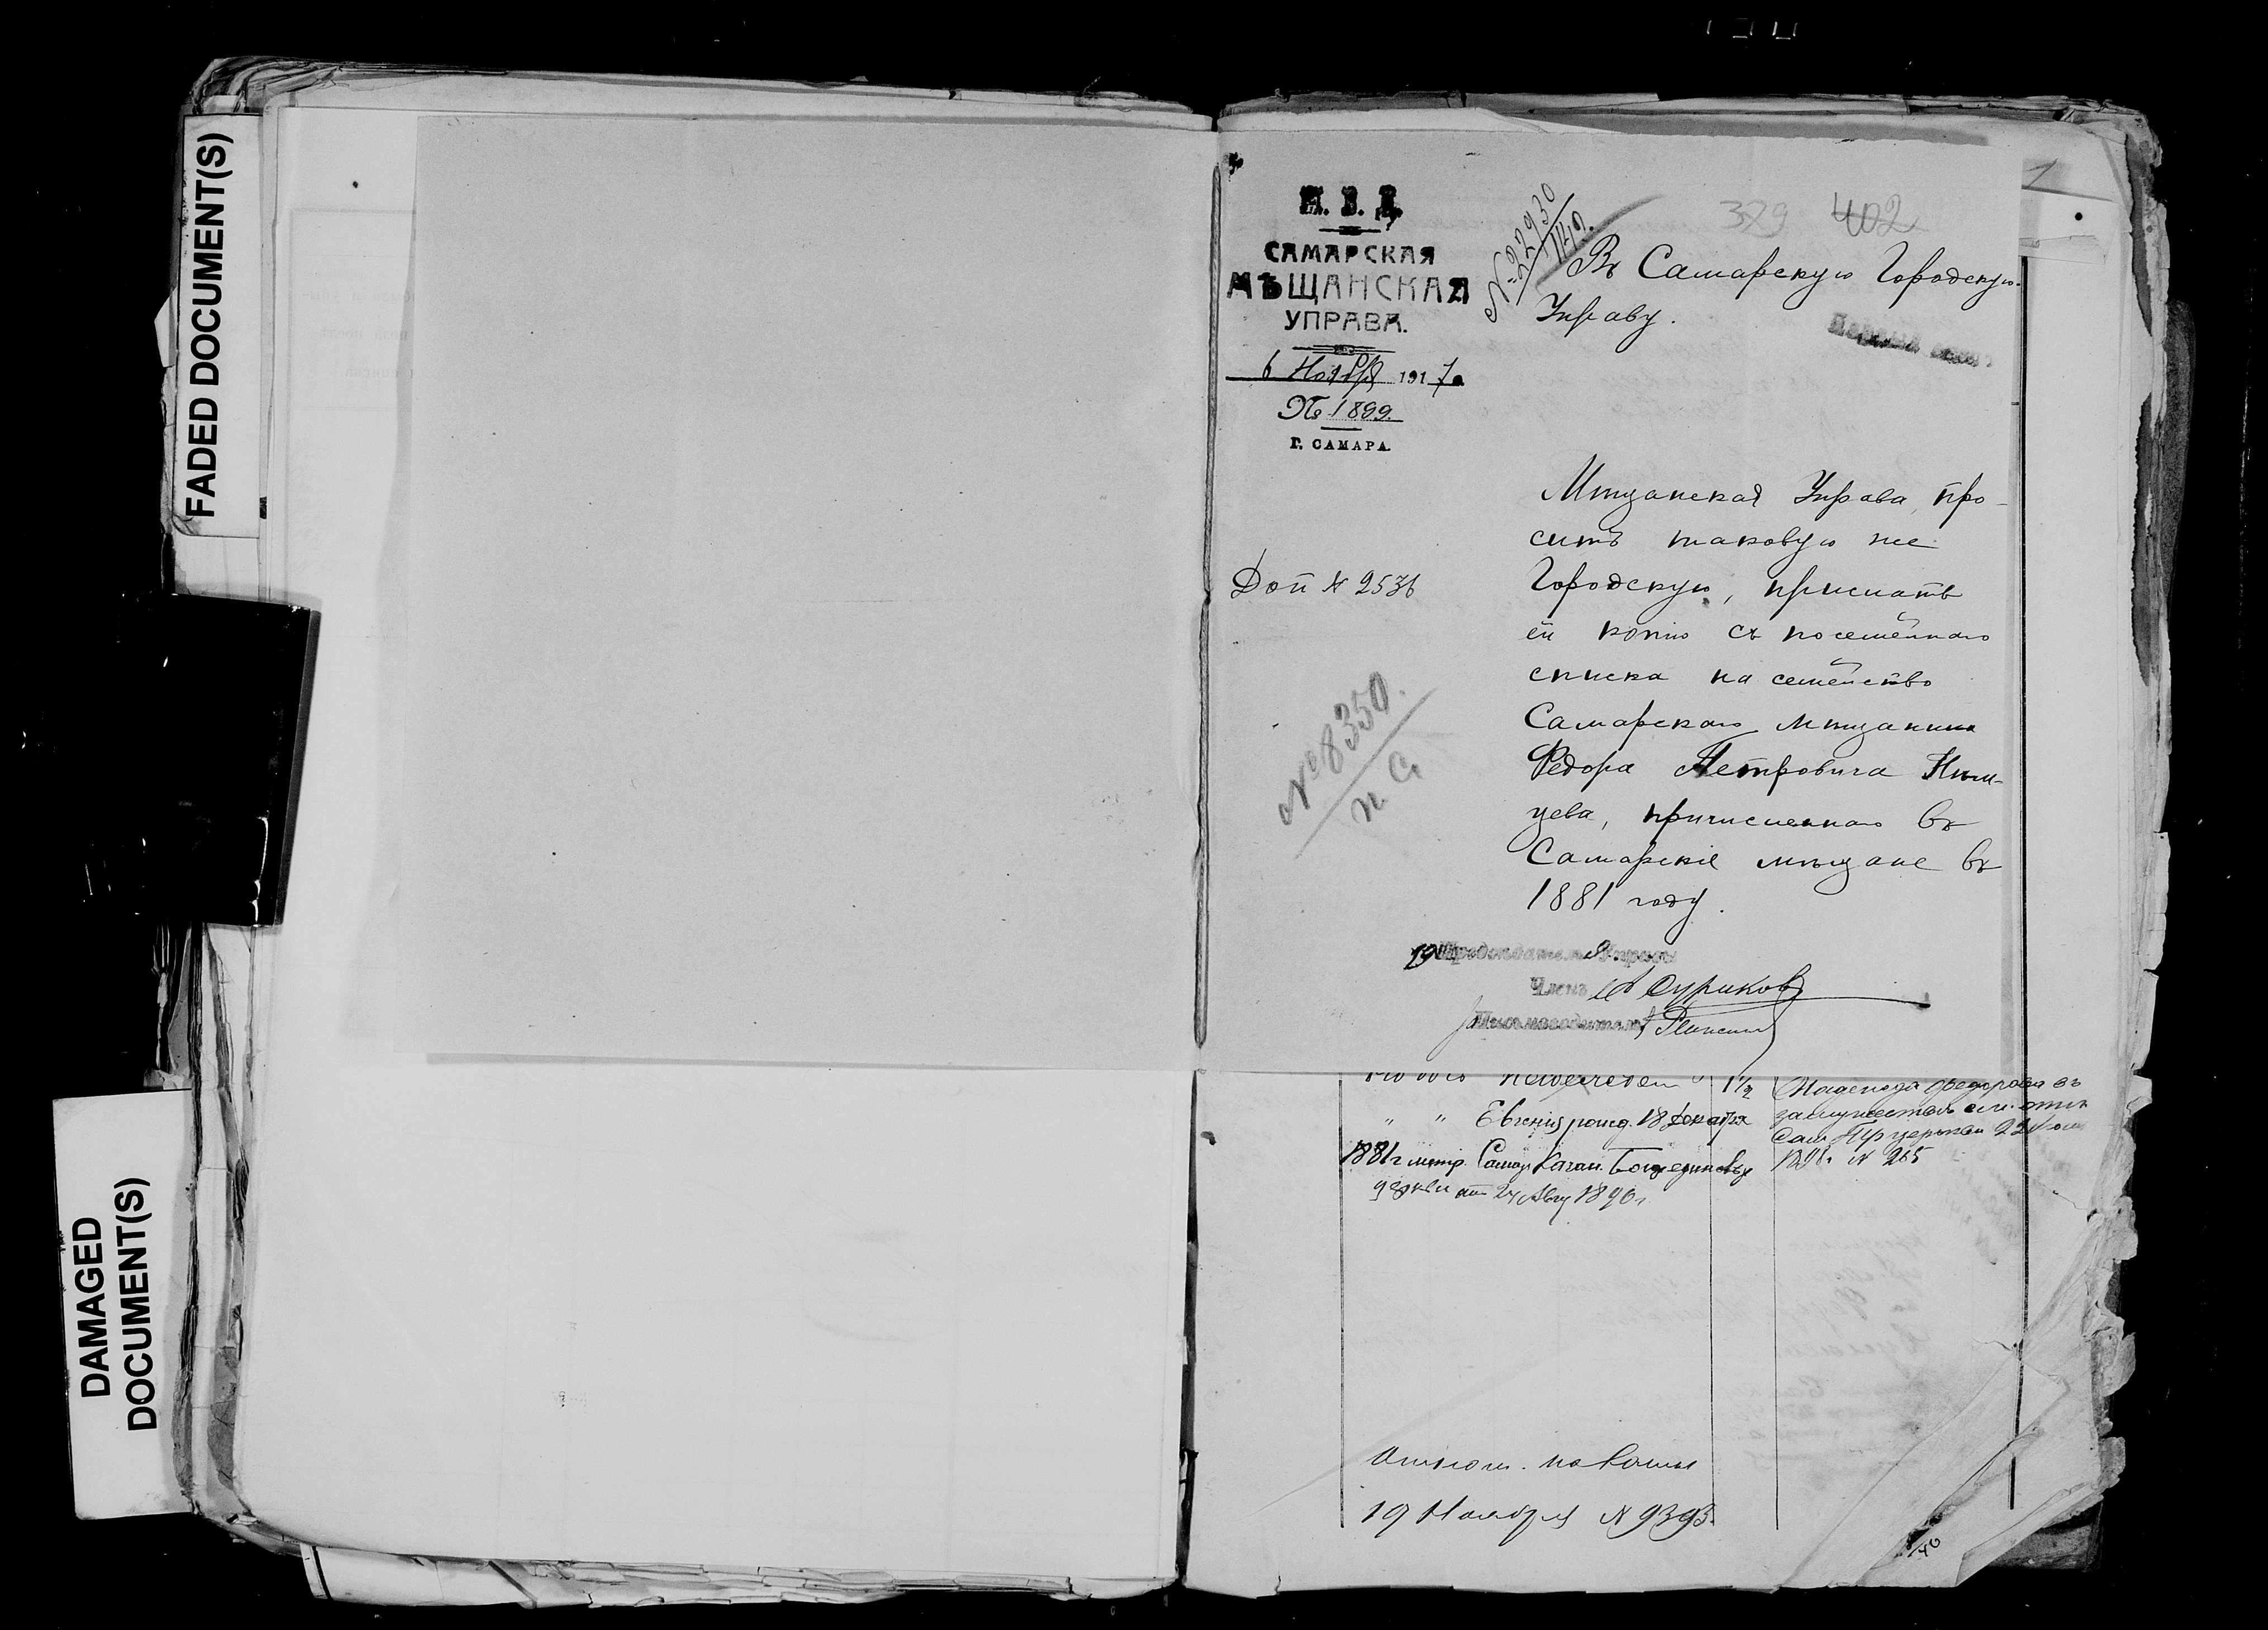 FADED DOCUMENT(S)
DAMAGED
DOCUMENT(S)
М. В. Д.
САМАРСКАЯ
МѢЩАНСКАЯ
УПРАВА.
6 Ноября 1917 г.
№ 1899.
Г. САМАРА.
№ 22930
329 402
Въ Самарскую Городскую
Управу.
Мѣщанская Управа, про-
ситъ таковую же
Доп № 2536
Городскую, прислать
ей копію съ посемейнаго
списка на семейство
Самарскаго мѣщанина
Федора Петровича Нѣм-
цева, причисленнаго въ
Самарскіе мѣщане въ
1881 году.
№ 8350.
п. с.
Предсѣдатель Управы
Членъ Суриков
Письмоводитель
1 1/2
Надежда Федорова въ
" " Евгенія рожд. 18 декабря
замужествѣ
1881 г метр. Самар. Казан. Единовѣр
1898 г № 265
церкви от 24 Авгу 1890 г
19 Ноября № 9393.
140